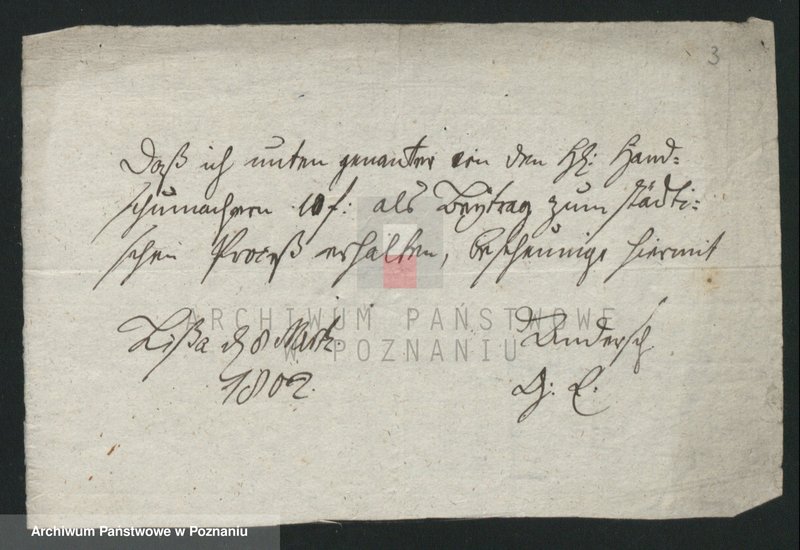 3
Daß ich unten genanter von den HH: Hand=
schumachern 10 f: als Beÿtrag zum städti=
schen Proceß erhalten, bescheinige hiermit
Lißa d 8 Martz
1802.
Andersch
ARCHIWUM PAŃSTWOWE
W POZNANIU
Archiwum Państwowe w Poznaniu